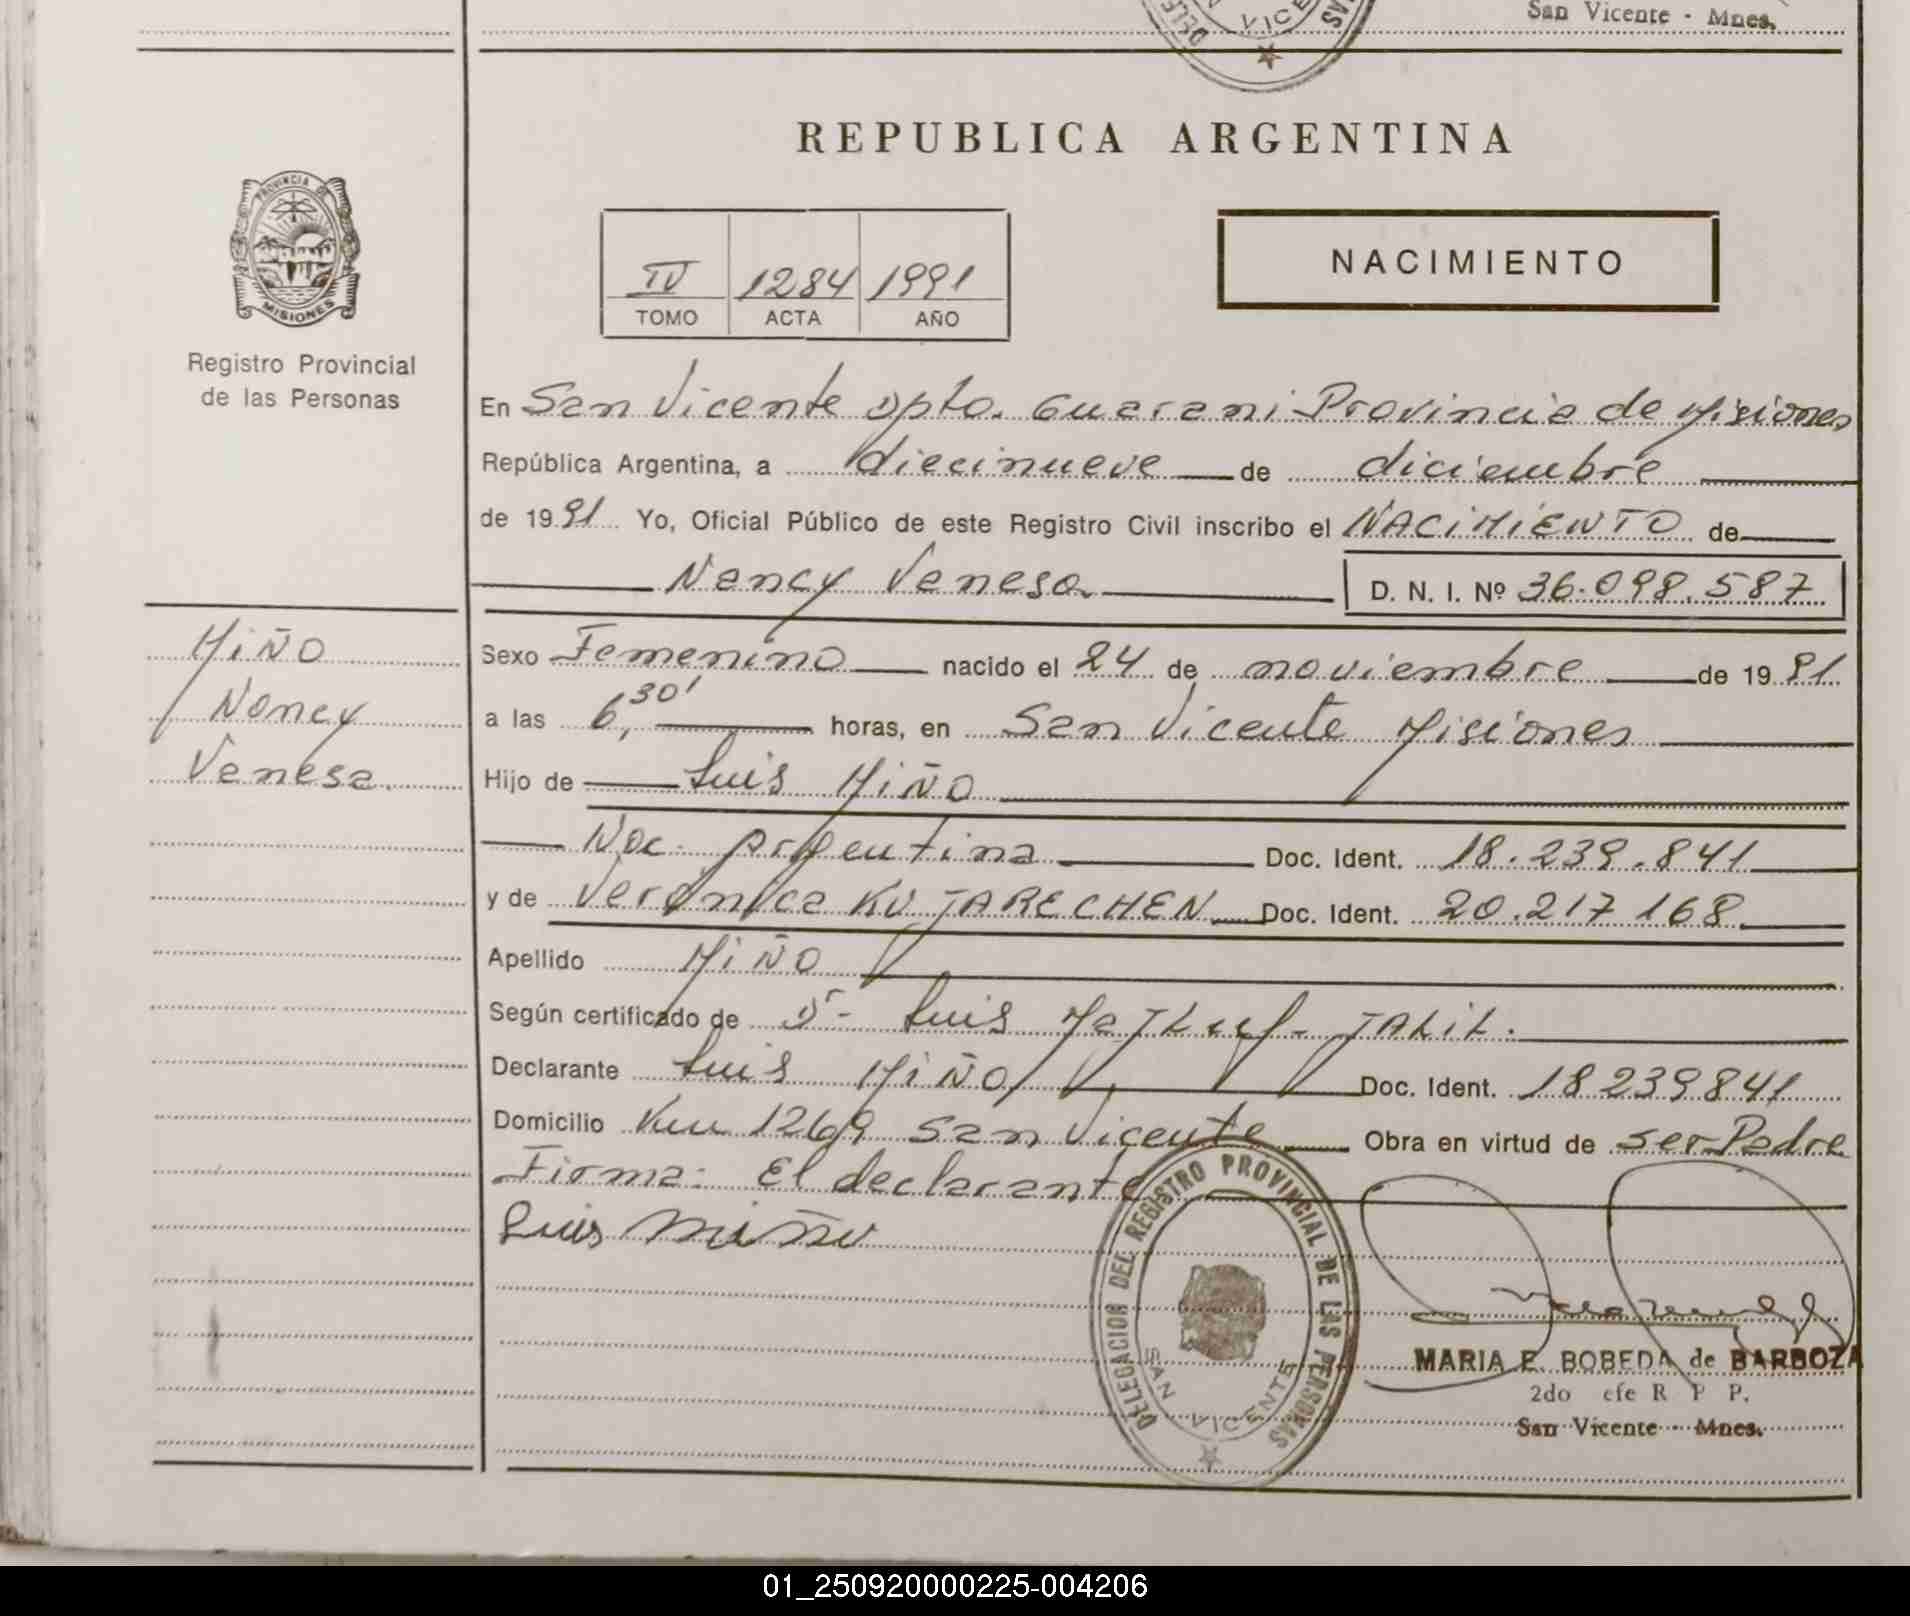 San Vicente - Mnes.
VICE
REPUBLICA ARGENTINA
PROVINCIA DE
MISIONES
Registro Provincial
de las Personas
IV 1284 1991
TOMO ACTA AÑO
NACIMIENTO
En San Vicente Dpto. Guarani Provincia de Misiones
República Argentina, a diecinueve de diciembre
de 1991 Yo, Oficial Público de este Registro Civil inscribo el NACIMIENTO de
Nancy Vanesa D. N. I. Nº 36.098.587
MIÑO
Nancy
Vanesa.
Sexo Femenino nacido el 24 de noviembre de 1991
a las 6,30' horas, en San Vicente Misiones
Hijo de Luis MIÑO
Nac. Argentina Doc. Ident. 18.239.841
y de Verónica KUJARECHEN Doc. Ident. 20.217 168
Apellido MIÑO
Según certificado de Dr- Luis JALIL.
Declarante Luis MIÑO Doc. Ident. 18239841
Domicilio Km 1269 San Vicente Obra en virtud de ser Padre
Firma: El declarante
Luis Miño
DELEGACION DEL REGISTRO PROVINCIAL DE LAS PERSONAS
SAN VICENTE
MARIA E. BOBEDA de BARBOZA
2do efe R P P.
San Vicente - Mnes.
01_250920000225-004206